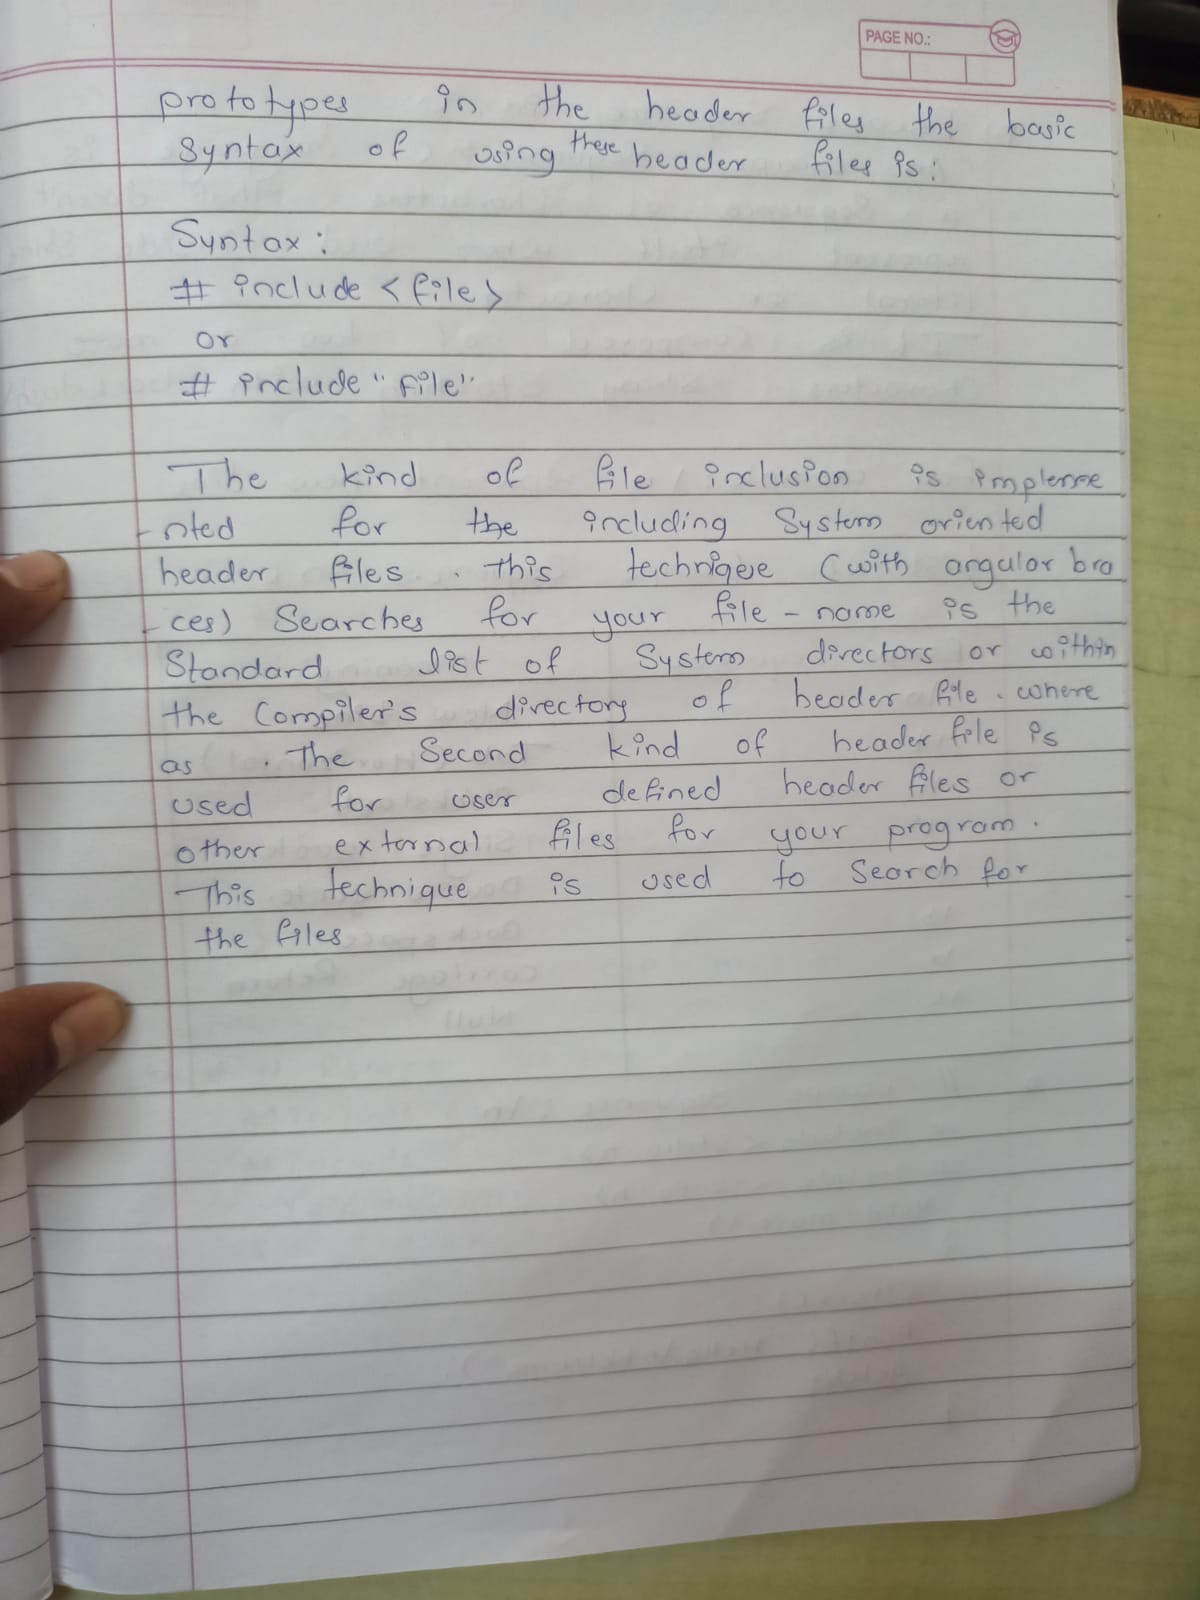 PAGE NO.:
prototypes in the header files the basic
Syntax of using these header files is:
Syntax:
# include <file>
or
# include "File"
The kind of file inclusion is impleme
nted for the including System oriented
header files. this techniqeue (with angular bra
ces) Searches for your file - name is the
Standard list of System directors or within
the Compiler's directory of header file. where
as . The Second kind of header file is
used for user defined header files or
other external files for your program.
This technique is used to Search for
the files